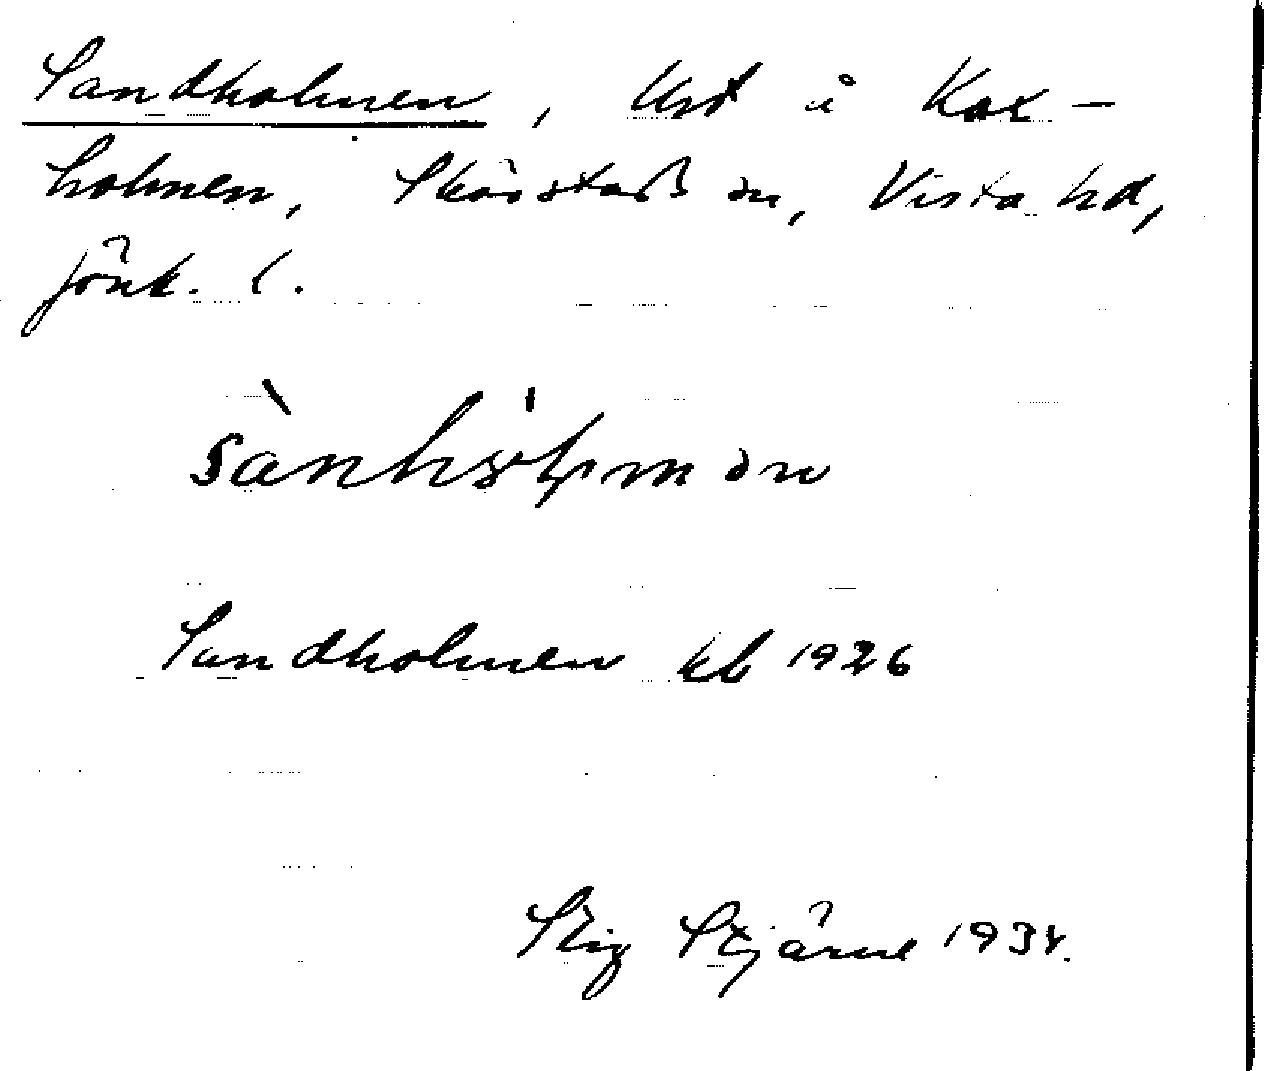 Sandholmen, Urt i Kax-
holmen, Skärstads sn, Vista hd,
Jönk. l.
Sandholmen kb 1926
Stig Stjärne 1934.